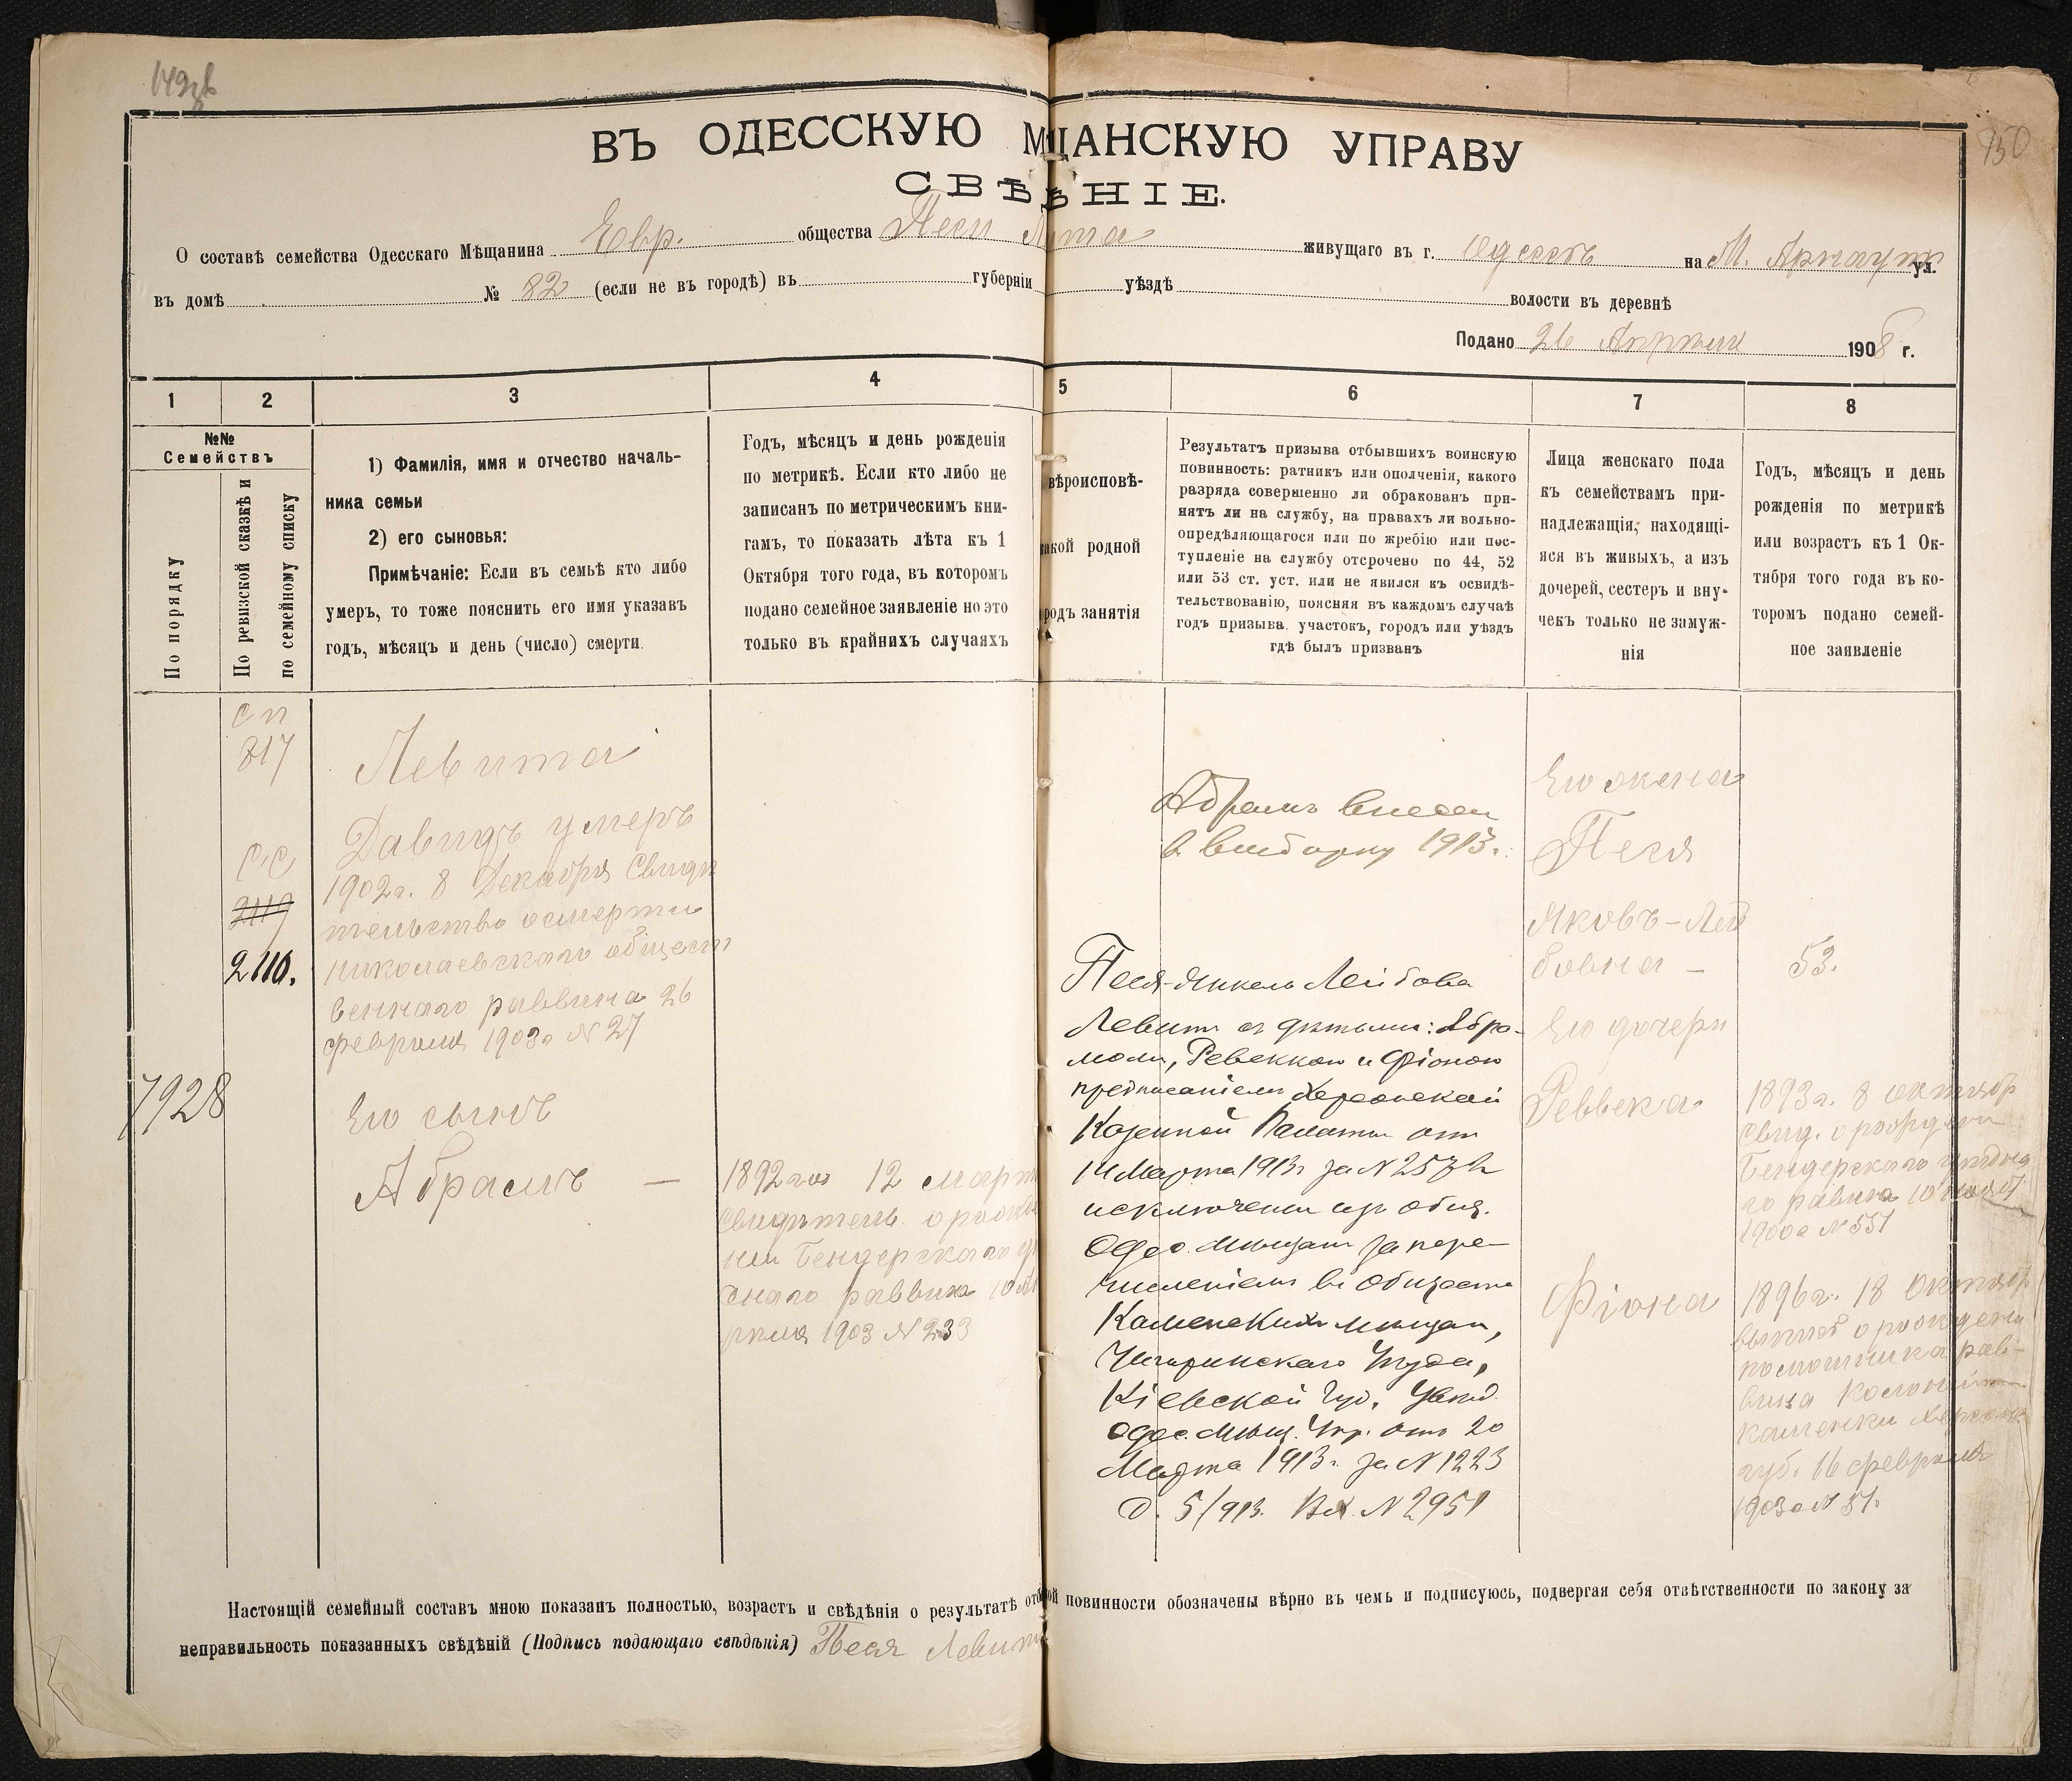 149зв
150
ВЪ ОДЕССКУЮ МЩАНСКУЮ УПРАВУ
СВѢѢНІЕ.
О составѣ семейства Одесскаго Мѣщанина Евр. общества Песи живущаго въ г. Одессѣ на М. Арнаутск ул.
въ домѣ № 82 (если не въ городѣ) въ губерніи уѣздѣ волости въ деревнѣ
Подано 26 Апрѣля 1908 г.
1 2 3 4 5 6 7 8
№№
Семействъ
По порядку
По ревизской сказкѣ и
по семейному списку
1) Фамилія, имя и отчество началь-
ника семьи
2) его сыновья:
Примѣчаніе: Если въ семьѣ кто либо
умеръ, то тоже пояснить его имя указавъ
годъ, мѣсяцъ и день (число) смерти.
Годъ, мѣсяцъ и день рожденія
по метрикѣ. Если кто либо не
записанъ по метрическимъ кни-
гамъ, то показать лѣта къ 1
Октября того года, въ которомъ
подано семейное заявленіе но это
только въ крайнихъ случаяхъ
вѣроисповѣ-
акой родной
родъ занятія
Результатъ призыва отбывшихъ воинскую
повинность: ратникъ или ополченія, какого
разряда совершенно ли обракованъ при-
нятъ ли на службу, на правахъ ли вольно-
опредѣляющагося или по жребію или пос-
тупленіе на службу отсрочено по 44, 52
или 53 ст. уст. или не явился къ освидѣ-
тельствованію, поясняя въ каждомъ случаѣ
годъ призыва. участокъ, городъ или уѣздъ
гдѣ былъ призванъ
Лица женскаго пола
къ семействамъ при-
надлежащія, находящі-
яся въ живыхъ, а изъ
дочерей, сестеръ и вну-
чекъ только не замуж-
нія
Годъ, мѣсяцъ и день
рожденія по метрикѣ
или возрастъ къ 1 Ок-
тября того года въ ко-
торомъ подано семей-
ное заявленіе
7928
сп
817
сс
2119
2110.
Левита
Давидъ умеръ
1902 г. 8 Декабря Свидѣ
тельство о смерти
николаевскаго общест
веннаго раввина 26
февраля 1903 г № 27
Его сынъ
Абрамъ —
1892 го 12 март
Свидѣтель. о рожде
нии Бендерскаго у
зднаго раввина 10 Ап
рѣля 1903 № 233
Абрамъ внесен
в выборку 1913 г.
Песя-Янкель Лейбова
Левит съ дѣтьми: Абра-
мом, Ревеккой и Фіоною
предписаніем Херсонской
Казенной Палаты от
14 Марта 1913 г за №
исключены из общ.
Одес. Мѣщан за пере-
числением в общество
Каменских мѣщан,
Чигиринскаго уѣзда,
Кіевской губ. Увѣд.
Одес. Мѣщ. Упр. от 20
Марта 1913 г. за № 1223
д. 5/913. Вх. № 2951
Его жена
Песя
Яковъ-Лей
бовна —
53.
Его дочери
Реввека
1893 г. 8 октябр
свид. о рожден
Бендерскаго уѣздна
го равина 10
1900 г № 551
Фіона
1896 г. 18 Октябр
выпись о рождени
помощника рав-
вина Колоніи
каменки Херсонс
губ. 16 февраля
1903 г № 51.
Настоящій семейный составъ мною показанъ полностью, возрастъ и свѣдѣнія о результатѣ отбой повинности обозначены вѣрно въ чемъ и подписуюсь, подвергая себя отвѣтственности по закону за
неправильность показанныхъ свѣдѣній (Подпись подающаго свѣдѣнія) Песя Левит